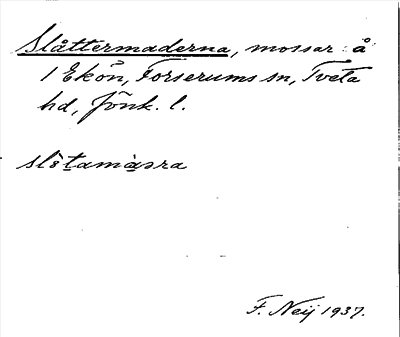 Slåttermaderna, mossar å
1 Ekön, Forserums sn, Tveta
hd, Jönk. l.
slòtamàsra
F. Neij 1937.